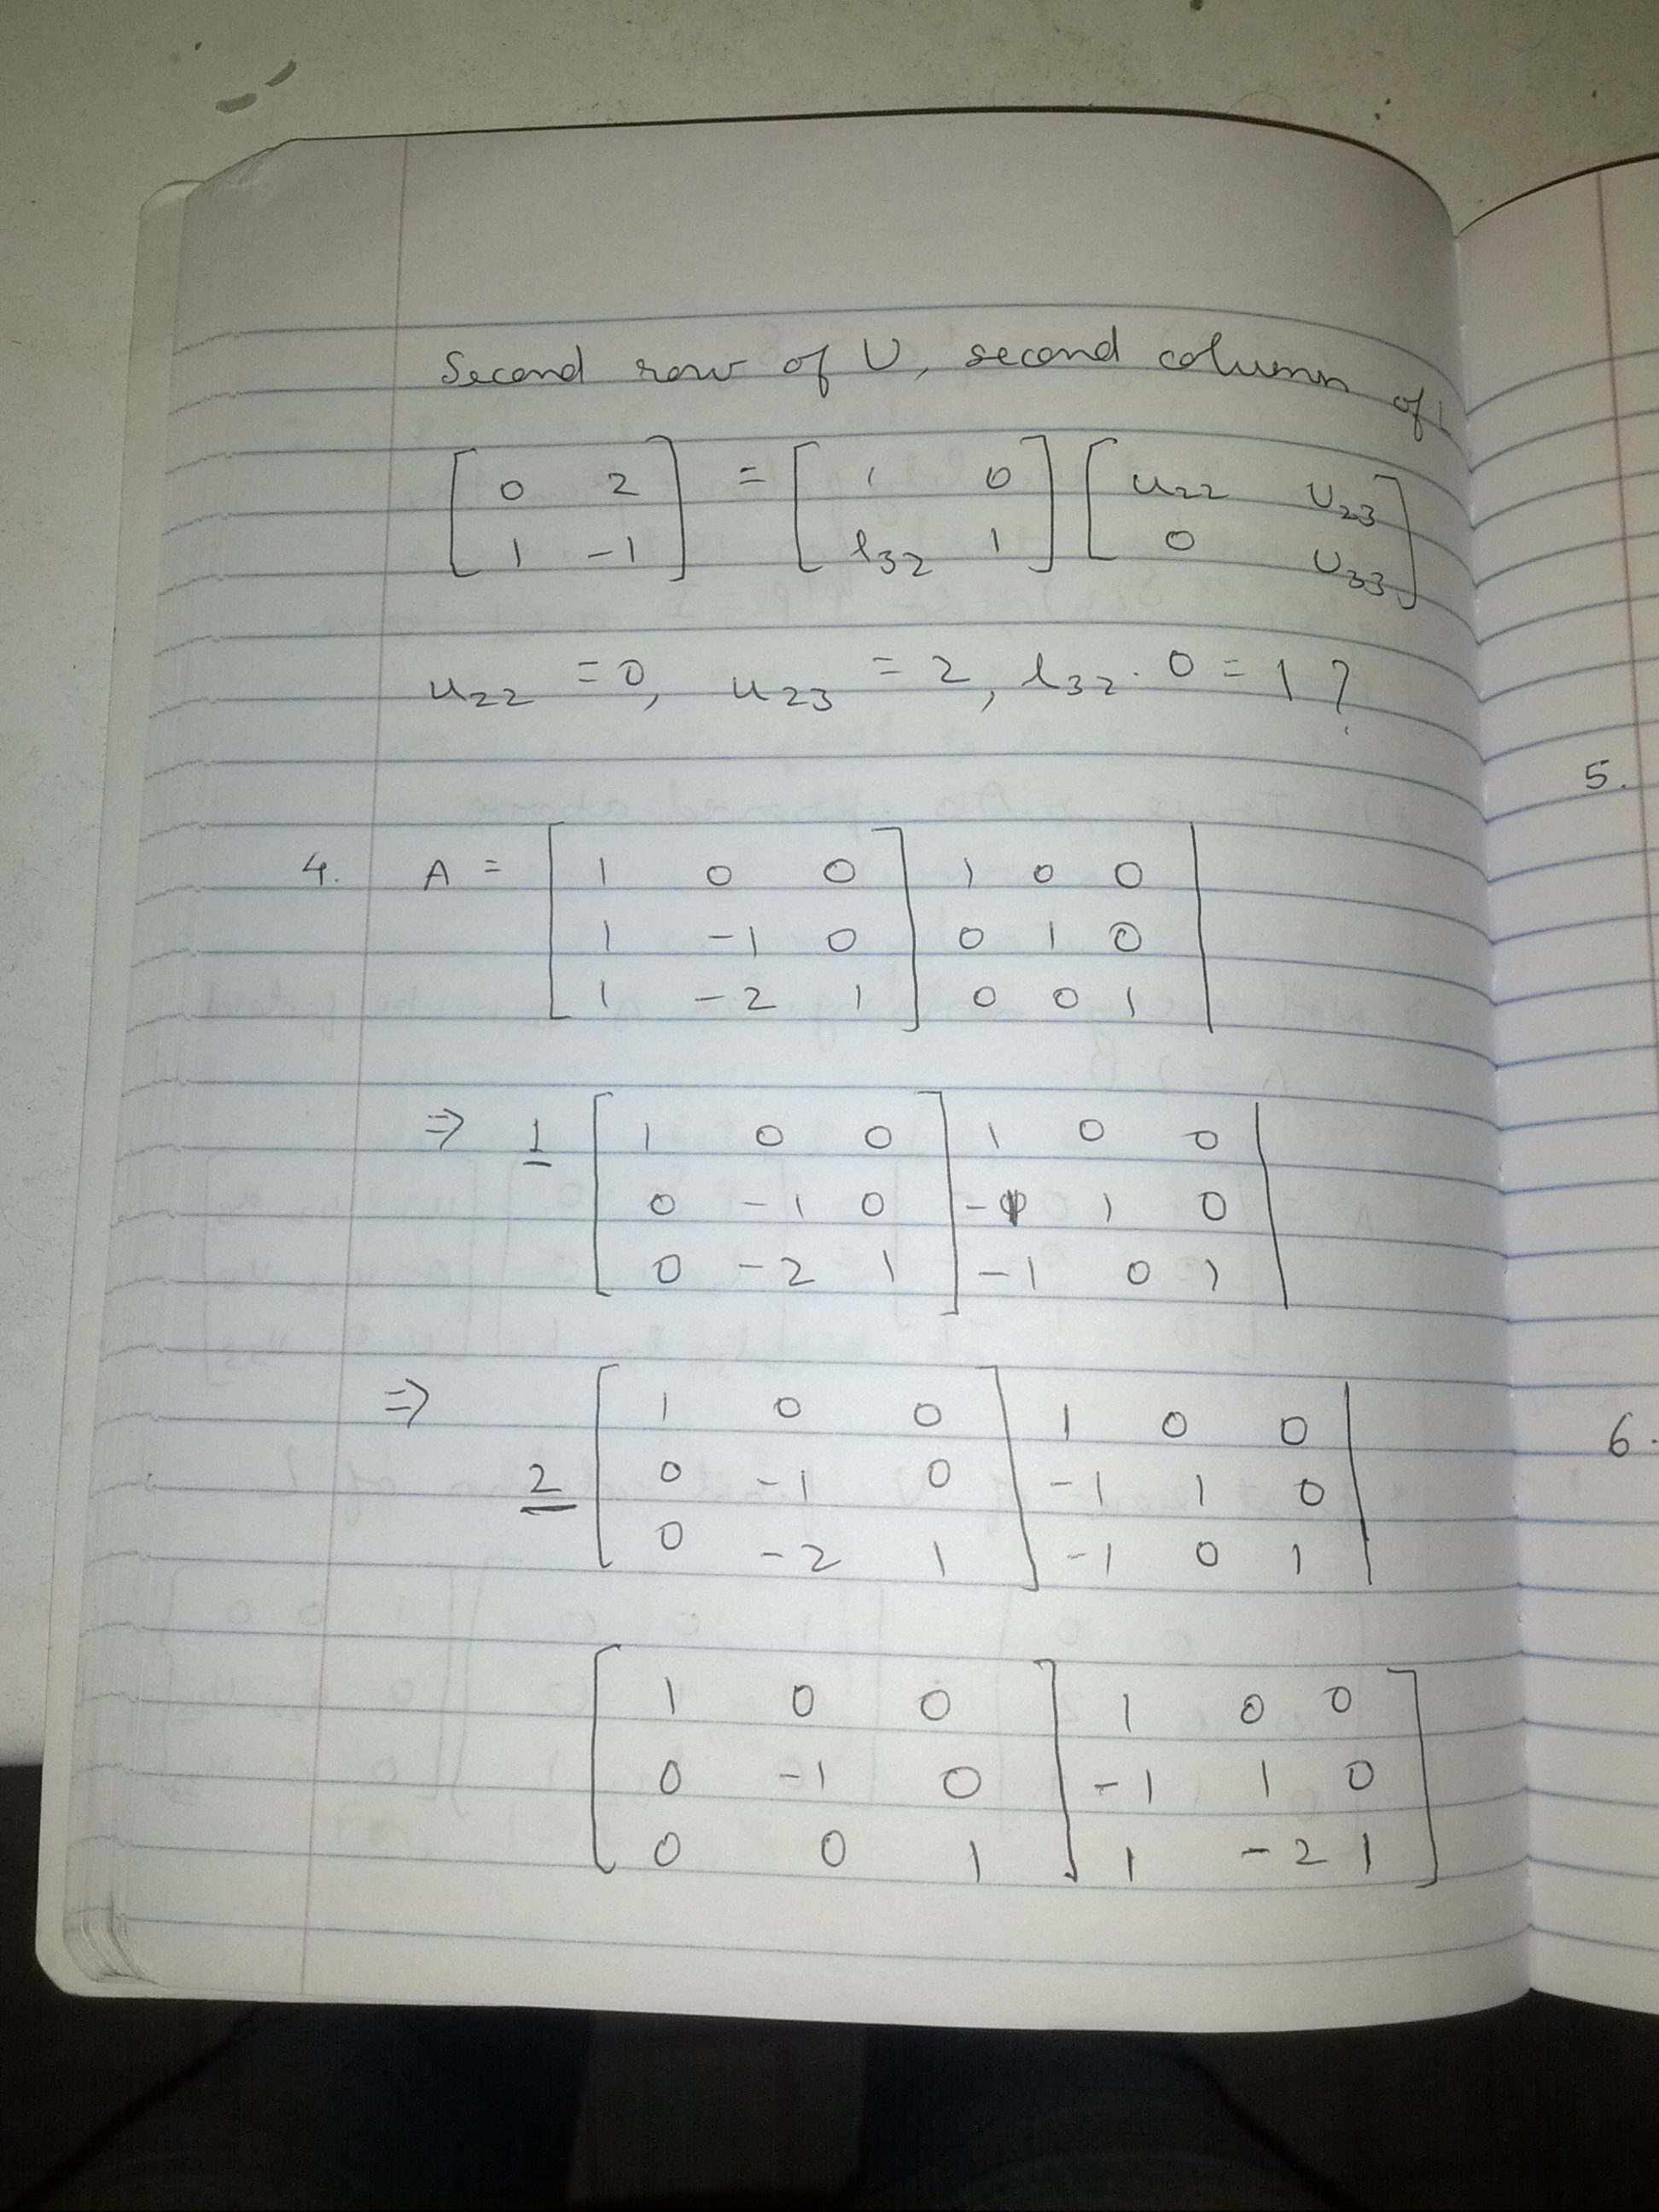 Second row of U, second column of L
[ 0 2 ] = [ 1 0 ] [ u22 U23 ]
[ 1 -1 ] [ l32 1 ] [ 0 U33 ]
u22 = 0, u23 = 2, l32 . 0 = 1 ?
5.
4. A = [ 1 0 0 ] 1 0 0 |
[ 1 -1 0 ] 0 1 0 |
[ 1 -2 1 ] 0 0 1 |
⇒ 1 [ 1 0 0 ] 1 0 0 |
[ 0 -1 0 ] -1 1 0 |
[ 0 -2 1 ] -1 0 1 |
⇒ [ 1 0 0 ] 1 0 0 |
6.
2 [ 0 -1 0 ] -1 1 0 |
[ 0 -2 1 ] -1 0 1 |
[ 1 0 0 ] 1 0 0 ]
[ 0 -1 0 ] -1 1 0 ]
[ 0 0 1 ] 1 -2 1 ]